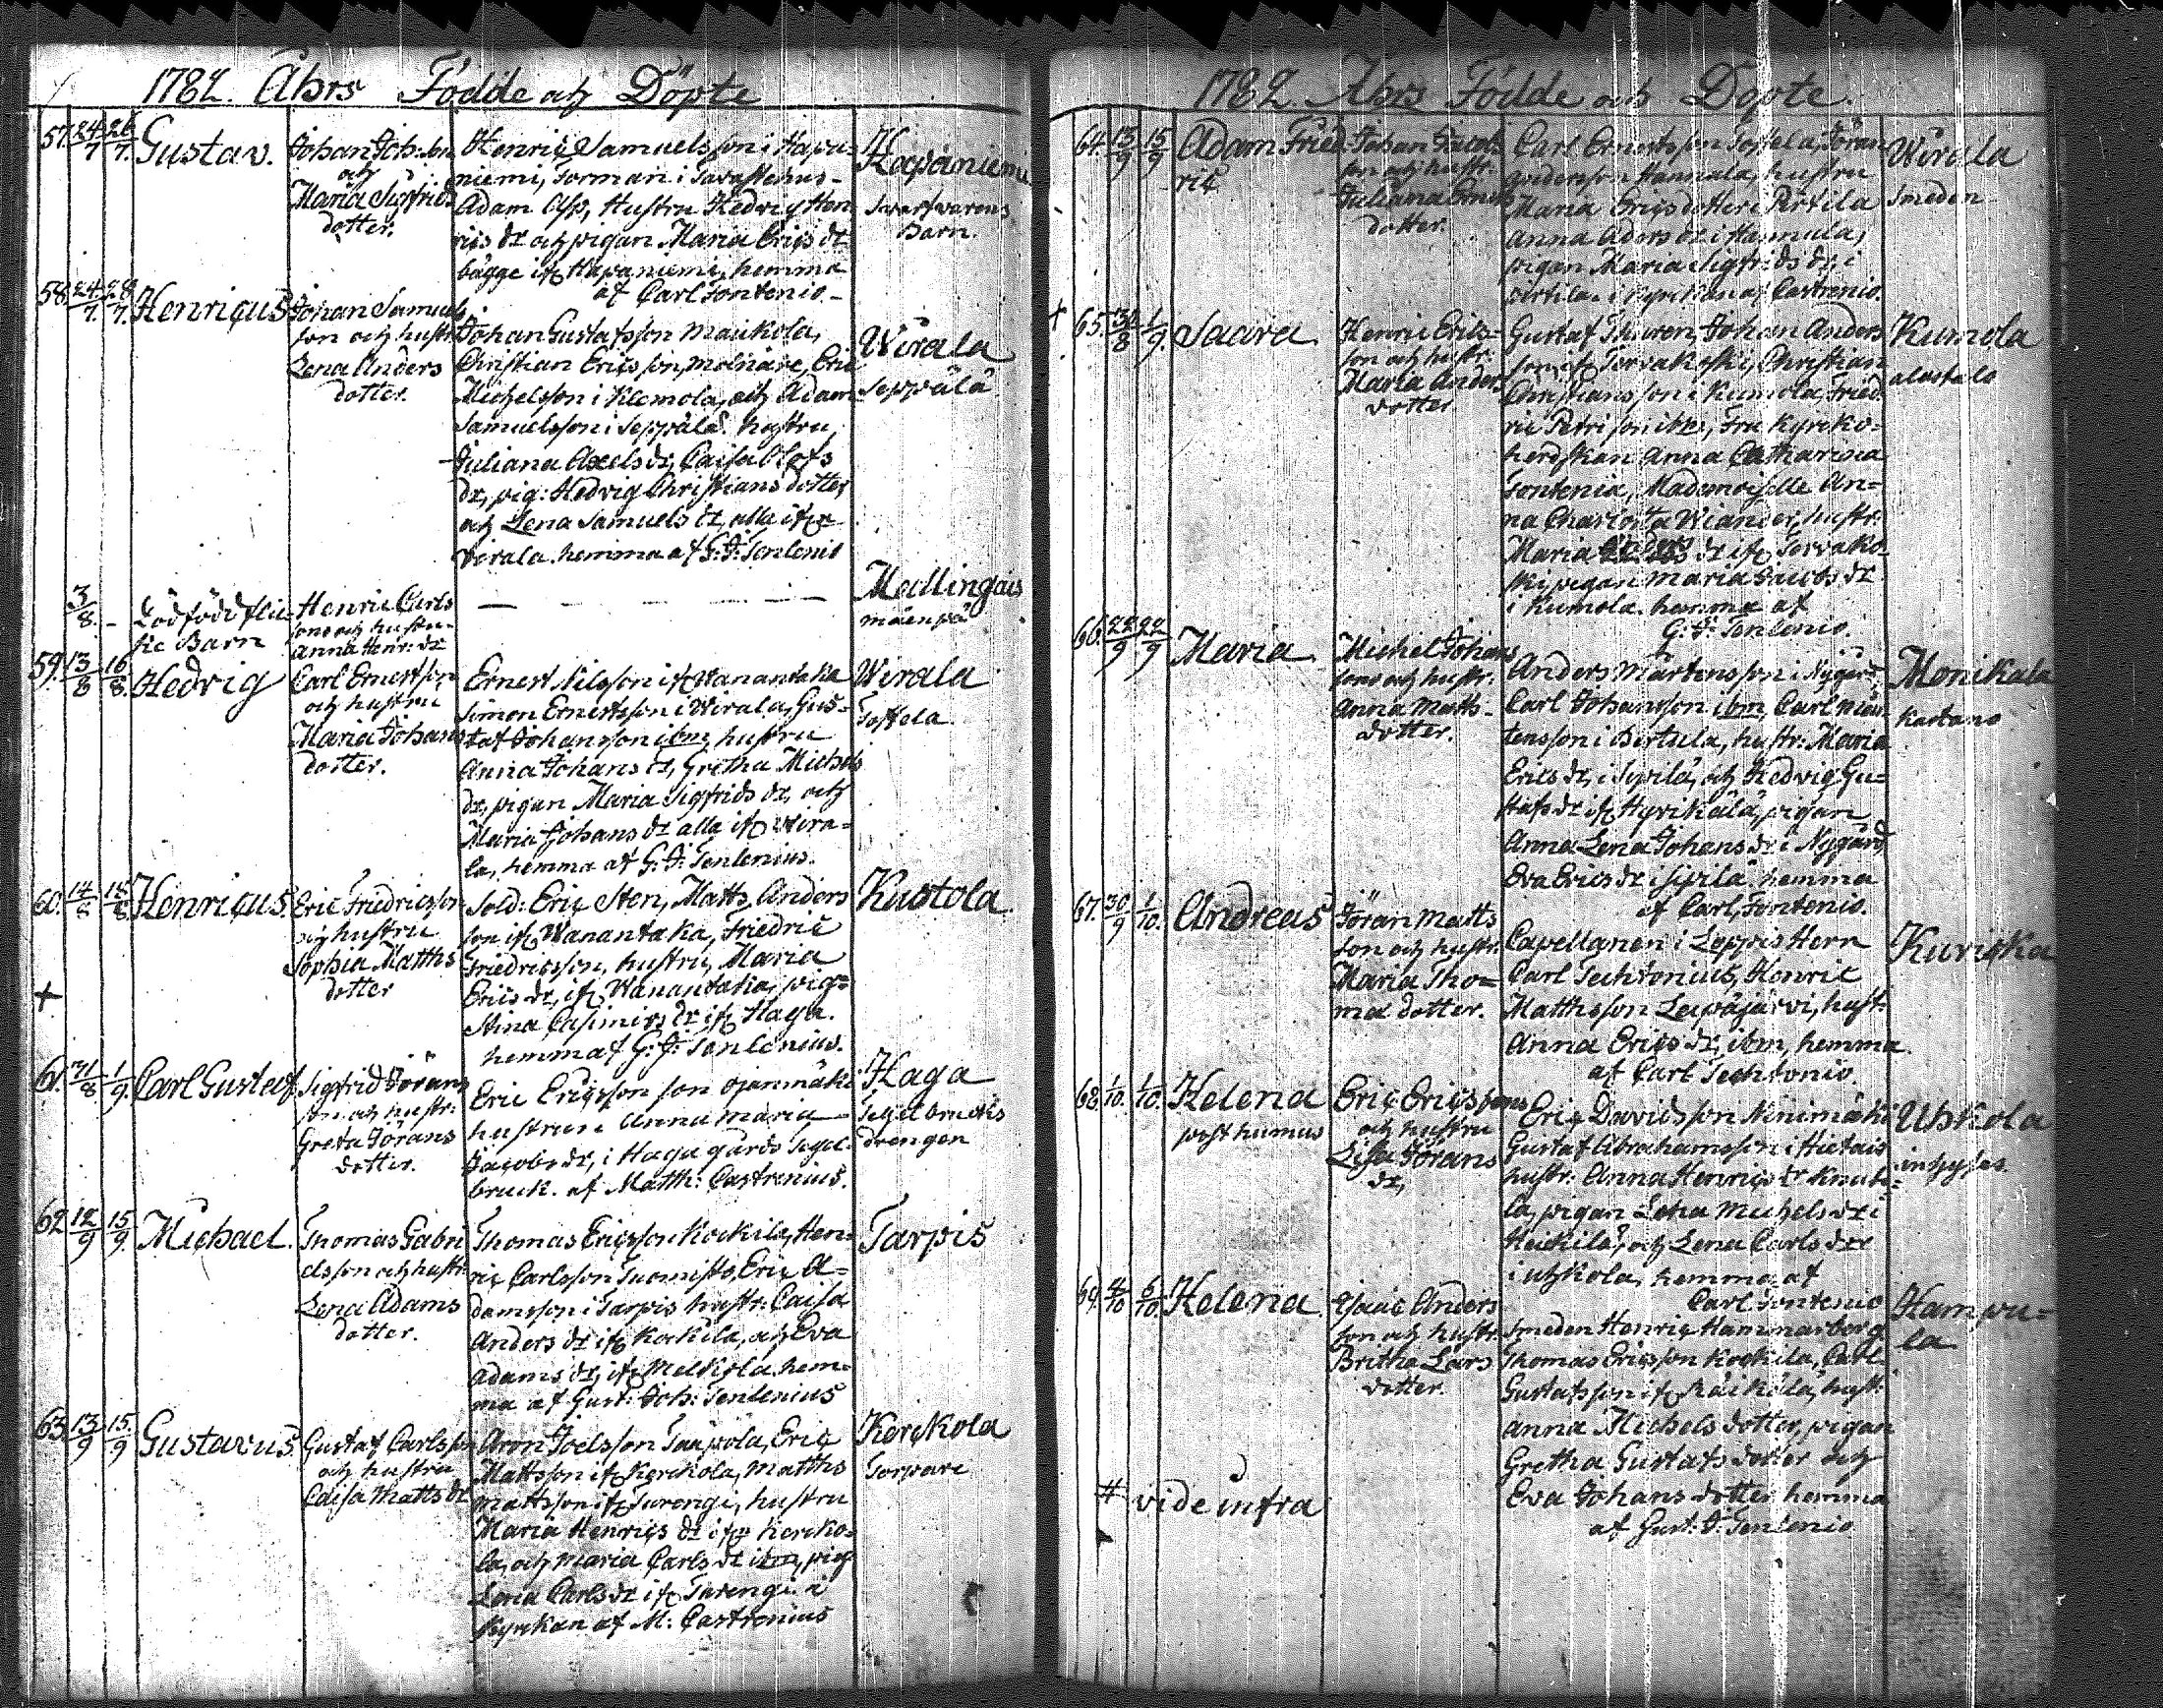 1782. Åhrs Födde och Döpte
57. 24/7 26/7. Gustav.
Johan Joh:son
och
Maria Sigfrids
dotter.
Henric Samuelsson i Hapa-
niemi, Torman i Tavastehus
Adam Asp, Hustru Hedvig Hen
rics dr och pigan Maria Erics dr
bägge ifr. Hapaniemi, hemma
af Carl Tontenio.
Hapaniemi
Svarfvarens
Barn.
58. 24/7. 28/7. Henricus
Johan Samuels
son och hustr:
Lena Anders
dotter.
Johan Gustafsson Maukola,
Christian Ericsson, molnare, Eric
Michelsson i Klemola, och Adam
Samuelsson i Seppälä. hustru,
Juliana Axels dr, Caisa Olofs
dr, pig: Hedvig Christians dotter
och Lena Samuels dr, alla ifr
Virala. hemma af G: J: Tenlenio
Wirala
Seppälä
3/8. Dödfödd flic-
ke Barn
Henric Carls
sons och hustru
Anna Henr: dr
Mallingais
mäenpä
59. 13/8 16/8. Hedvig
Carl Ernestson
och hustru
Maria Johans
dotter.
Ernest Nilsson ifr. Wanantaka
Simon Ernestsson i Wirala, Gus-
taf Johansson ibm, hustru
Anna Johans dr, Gretha Michels
dr, pigan Maria Sigfrids dr, och
Maria Johans dr alla ifr Wira-
la, hemma af G: J: Tenlenius.
Wirala
Toffela
60. 14/8 15/8 Henricus
Eric Friedricsson
och hustru
Sophia Matths
dotter
Sold: Eric Sten, Matts Anders
son ifr. Wanantaka, Friedric
Friedricsson, hustru, Maria
Erics dr, ifr. Wanantaka, pig-
Stina Casimirs dr ifr. Haga.
hemma af G: J: Tenlenius.
Kustola
61. 31/8 1/9. Carl Gustaf
Sigfrid Görans
son och hustr:
Greta Görans
dotter.
Eric Ericsson son Ojanmäki
hustrun Anna Maria
Jacobs dr, i Haga gårds Tegel-
bruck. af Matth: Castrenius.
Haga
Tegelbrucks
drengen
62 12/9 15/9. Michael.
Thomas Gabri
elsson och hustr:
Lena Adams
dotter.
Thomas Ericsson Kockila, Hen-
ric Carlsson Tuomisto, Eric A-
damsson i Tarpis hustr: Caisa
Anders dr ifr Kockila, och Eva
Adams dr, ifr. Melkola. hem-
ma af Gust: Joh: Tenlenius
Tarpis
63. 13/9 15/9 Gustavus
Gustaf Carlsson
och hustru
Caisa Matts dr
Aron Joelsson Taupola, Eric
Mattsson ifr. Kerckola, Matths
Mattsson ifr. Turengi, hustru
Maria Henrics dr ifr. Kercko-
la, och Maria Carls dr ibm, pig
Lena Carls dr ifr Turengi i
Kyrckan af M: Castrenius
Kerckola
Torpare
1782. Åhrs Födde och Döpte.
64. 13/9 15/9 Adam Fried-
ric
Johan Jacobs
son och hustr:
Juliana Ernests
dotter.
Carl Ernestsson Toffela, Göran
Andersson Hannula, hustru
Maria Ericsdotter i Pirtila
Anna Aders dr i Hannula,
pigan Maria Sigfrids dr, i
Pirtila. i Kyrckan af Castrenio.
Wirala
Smeden
+ 65. 30/8 1/9. Saara.
Henric Erics-
son och hustr:
Maria Anders
dotter.
Gustaf Thuren, Johan Anders
son, ifr. Tervakoski, Christian
Christiansson i Kumola, Fried-
ric Petri son ibm, Fru Kyrcko-
herdskan Anna Catharina
Tontenia, Mademoiselle An-
na Charlotta Wiander, hustr:
Maria dr ifr Tervako-
ski, pigan Maria Jacobs dr
i Kumola. hemma af
G: J: Tenlenio.
Kumola
alastalo
66. 22/9 22/9 Maria
Michel Johans
sons och hustr:
Anna Matts
dotter.
Anders Mårtensson i Nygård,
Carl Johansson ibm, Carl Mår-
tensson i Bertula, hustr: Maria
Erics dr, i Sipilä, och Hedvig Gu-
stafs dr ifr Hyvikälä, pigan
Anna Lena Johans dr i Nygård,
Eva Erics dr i Sipilä. hemma
af Carl Tontenio.
Monikala
Kartano
67. 30/9 1/10. Andreas
Jöran Matts
son och hustr:
Maria Tho-
mæ dotter.
Capellanen i Loppis Herr
Carl Techtonius, Henric
Matthsson Lepäjärvi, hust:
Anna Erics dr, ibm, hemma
af Carl Techtonio.
Kuricka
68. 1/10. 1/10. Helena
posthumus
Eric Ericssons
och hustru
Lisa Görans
dr,
Eric Davidsson Ninimäki
Gustaf Abrahamsson i Hietais
hustr: Anna Henrics dr Knuti-
la, pigan Lena Michels dr i
Heickilä, och Lena Carls dr
i Uhkola, hemma af
Carl Tontenio
Uhkola
inhyses.
69. 4/10 6/10. Helena
Isaac Anders
son och hustr:
Britha Lars
dotter.
Smeden Henric Hammarberg
Thomas Ericsson Kockila, Carl
Gustafsson ifr. Räikälä, hust:
Anna Michels dotter, pigan
Gretha Gustafs dotter och
Eva Johans dotter hemma
af Gust: J: Tenlenio
Hampu-
la
# vide infra